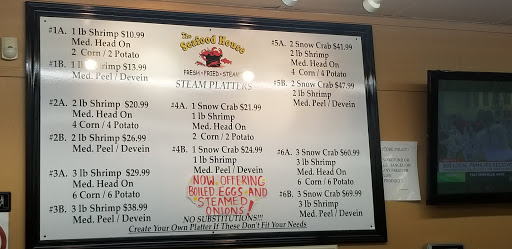 #1A. 1 lb Shrimp $10.99
Med. Head On
2 Corn / 2 Potato
#1B. 1 lb Shrimp $13.99
Med. Peel / Devein
#2A. 2 lb Shrimp $20.99
Med. Head On
4 Corn / 4 Potato
#2B. 2 lb Shrimp $26.99
Med. Peel / Devein
#3A. 3 lb Shrimp $29.99
Med. Head On
6 Corn / 6 Potato
#3B. 3 lb Shrimp $38.99
Med. Peel / Devein
The
Seafood House
FRESH • FRIED • STEAM
STEAM PLATTERS
#4A. 1 Snow Crab $21.99
1 lb Shrimp
Med. Head On
2 Corn / 2 Potato
#4B. 1 Snow Crab $24.99
1 lb Shrimp
Med. Peel / Devein
NOW OFFERING
BOILED EGGS AND
STEAMED
ONIONS!
NO SUBSTITUTIONS!!!
Create Your Own Platter If These Don't Fit Your Needs
#5A. 2 Snow Crab $41.99
2 lb Shrimp
Med. Head On
4 Corn / 4 Potato
#5B. 2 Snow Crab $47.99
2 lb Shrimp
Med. Peel / Devein
#6A. 3 Snow Crab $60.99
3 lb Shrimp
Med. Head On
6 Corn / 6 Potato
#6B. 3 Snow Crab $69.99
3 lb Shrimp
Med. Peel / Devein